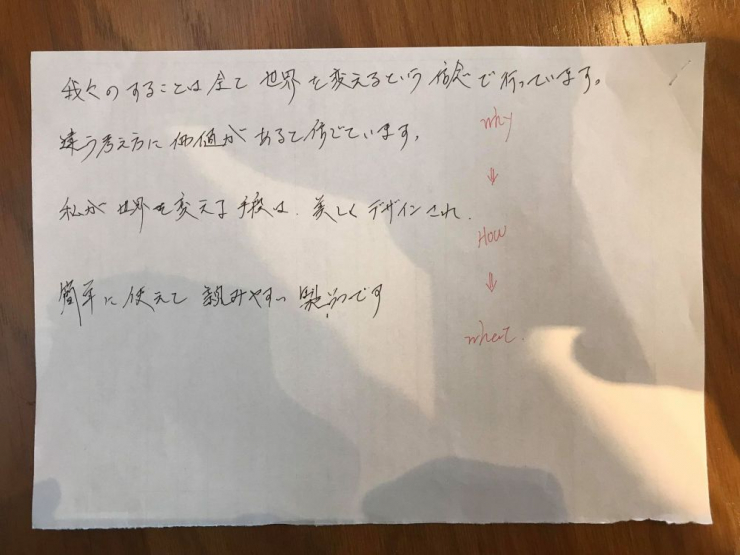 我々のすることは全て世界を変えるという信念で行っています。
違う考え方に価値があると信じています。
私が世界を変える手段は、美しくデザインされ、
簡単に使えて親みやすい製品です
why
⇓
How
⇓
what.